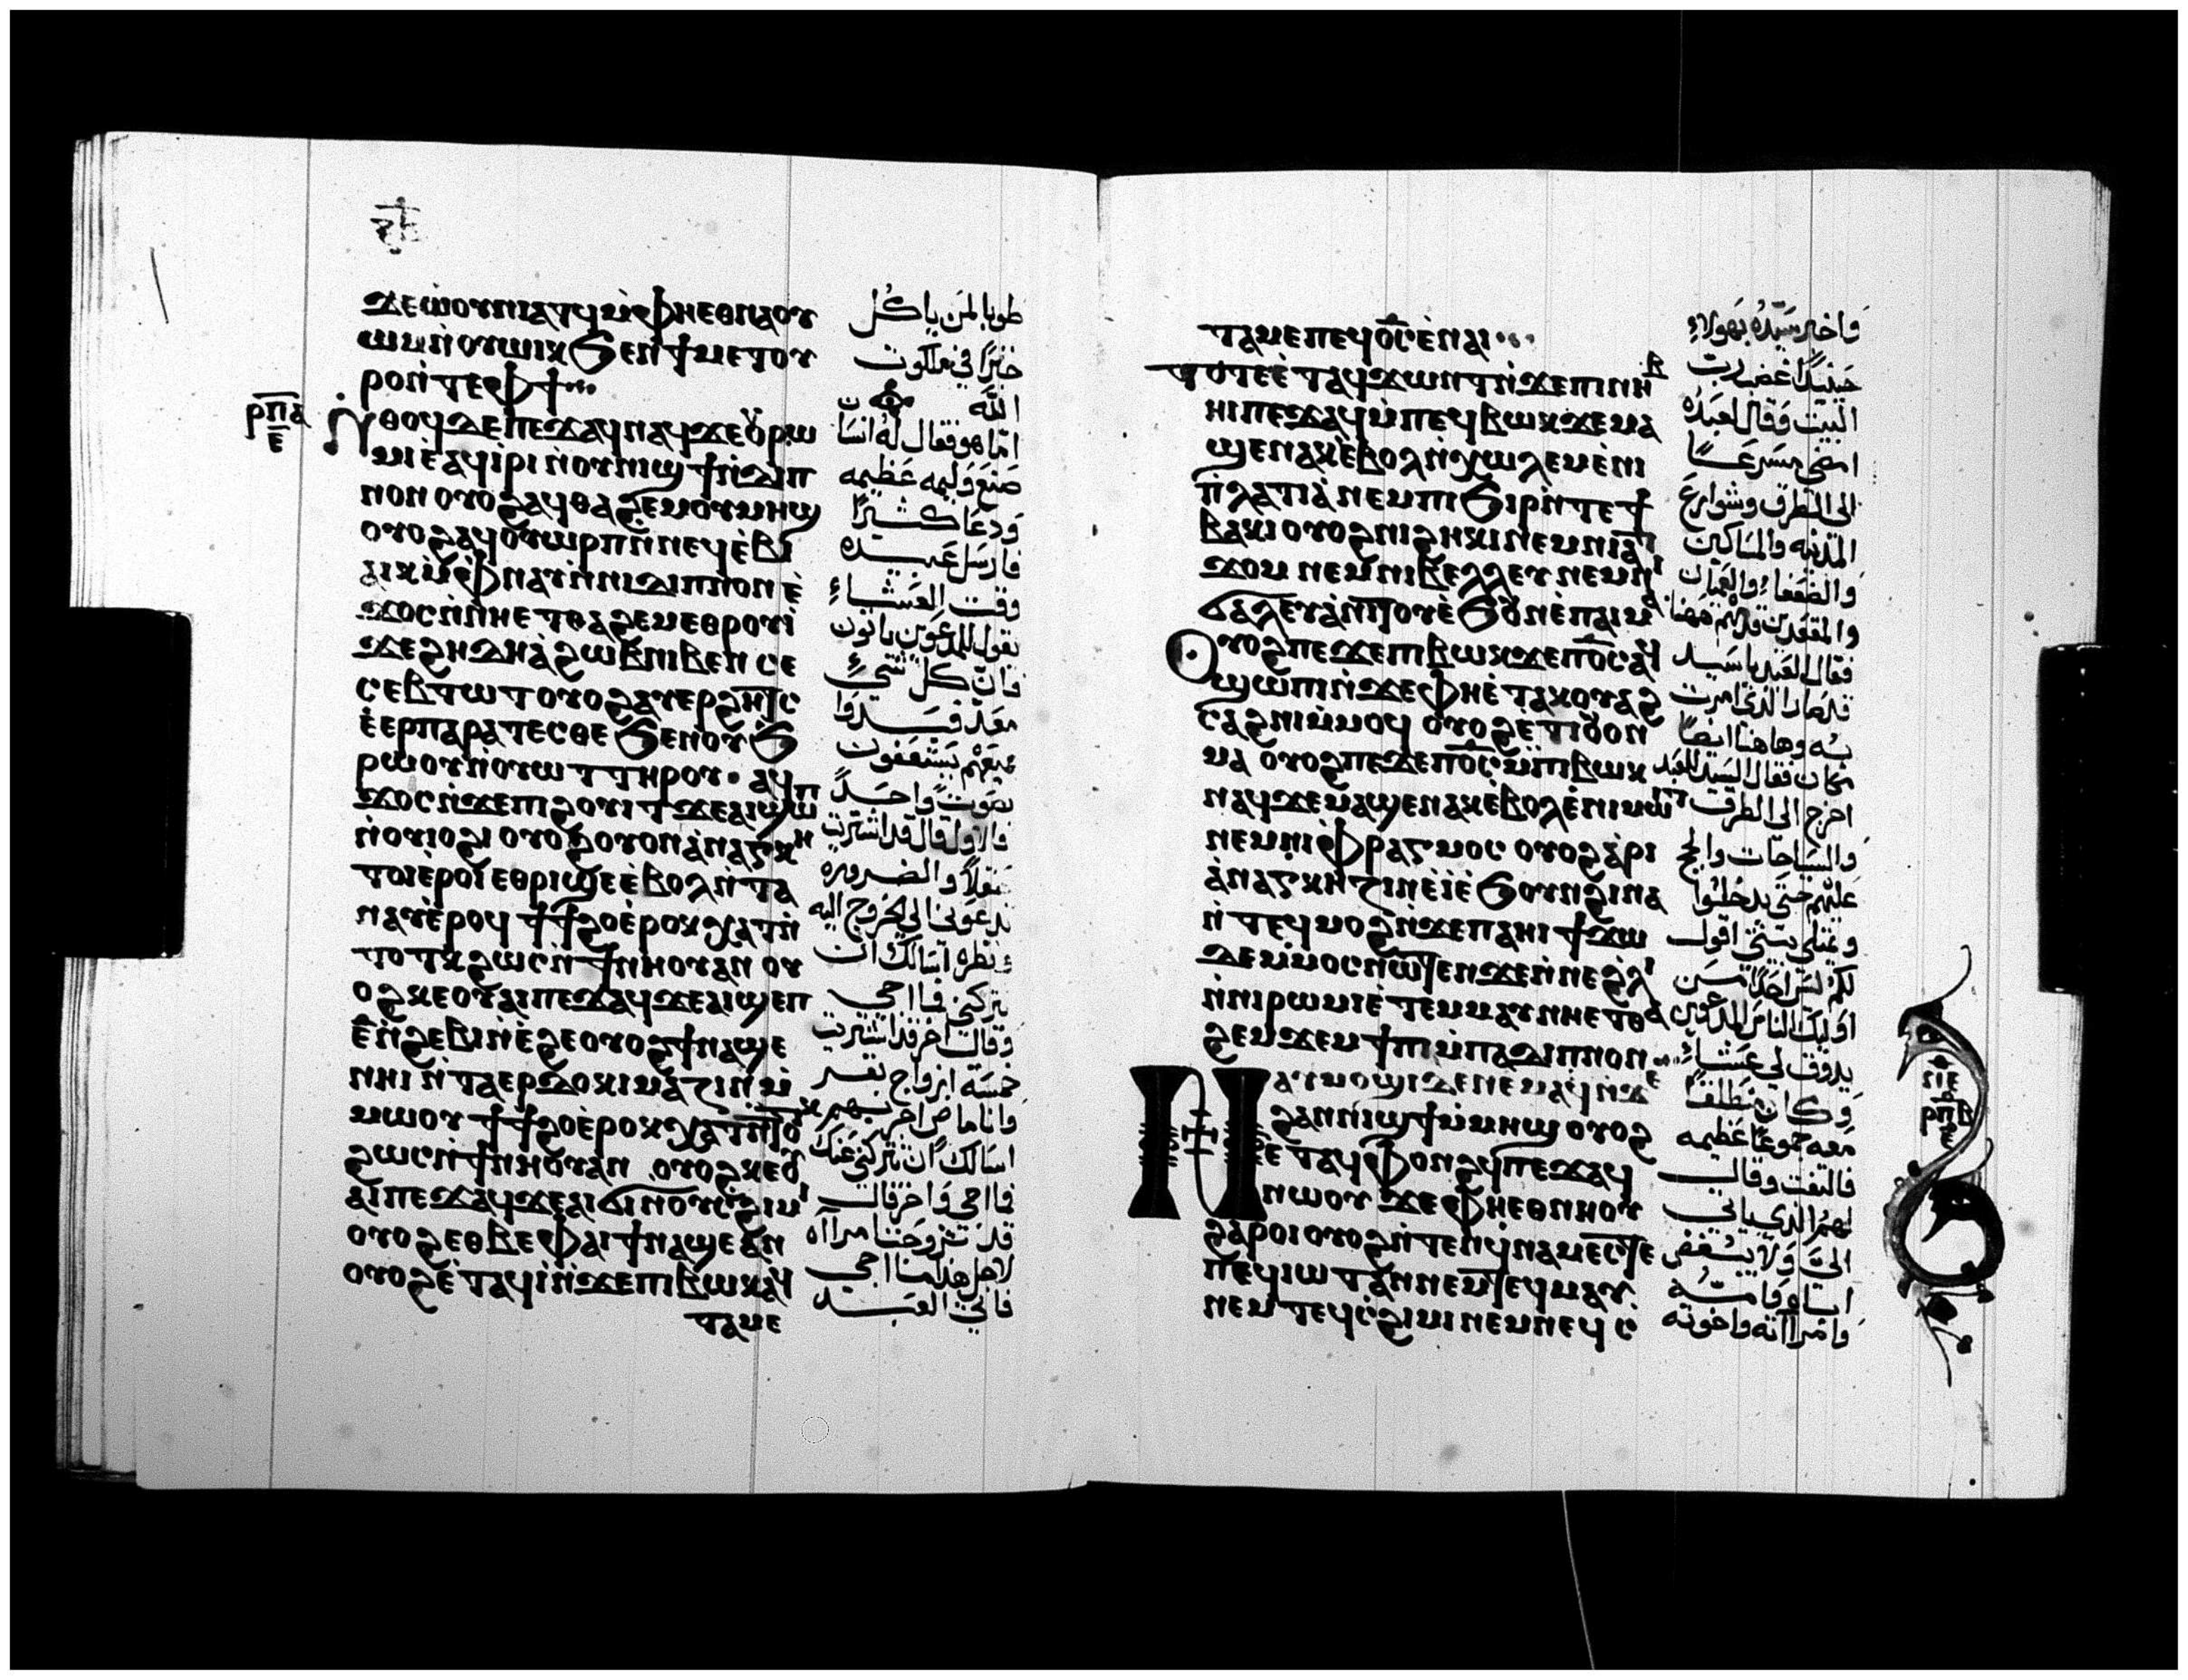 ϫⲉⲱⲟⲩⲛⲓⲁⲧϥⲙ̀ⲫⲏⲉⲑⲛⲁⲟⲩ
ⲱⲙⲛ̀ⲟⲩⲱⲓⲕϧⲉⲛϯⲙⲉⲧⲟⲩ
ⲣⲟⲛ̀ⲧⲉⲫϯ
ⲣ̅ⲡ̅ⲁ̅
ⲉ̅
ⲛ̀ⲑⲟϥⲇⲉⲡⲉϫⲁϥⲛⲁϥϫⲉⲟⲩⲣⲱ
ⲙⲓⲉ̀ⲁϥⲓ̀ⲣⲓⲛ̀ⲟⲩⲛⲓϣϯⲛ̀ⲇⲓⲡ
ⲛⲟⲛⲟⲩⲟϩⲁϥⲑⲁϩⲉⲙⲟⲩⲙⲏϣ
ⲟⲩⲟϩⲁϥⲟⲩⲱⲣⲡⲛ̀ⲛⲉϥⲉ̀ⲃⲓ
ⲁⲓⲕⲙ̀ⲫⲛⲁⲩⲛ̀ⲛⲓⲇⲓⲡⲛⲟⲛⲉ̀
ϫⲟⲥⲛ̀ⲛⲏⲉⲧⲑⲁϩⲉⲙⲉⲑⲣⲟⲩⲓ̀
ϫⲉϩⲏⲇⲏⲁ̀ϩⲱⲃⲛⲓⲃⲉⲛⲥⲉ
ⲥⲉⲃⲧⲱⲧⲟⲩⲟϩⲁⲩⲉⲣϩⲏⲧⲥ
ⲉ̀ⲉⲣⲡⲁⲣⲁⲧⲉⲥⲑⲉϧⲉⲛⲟⲩϧ
ⲣⲱⲟⲩⲛ̀ⲟⲩⲱⲧⲧⲏⲣⲟⲩ· ⲁϥ
ϫⲟⲥⲛ̀ϫⲉⲡⲓϩⲟⲩⲓⲧϫⲉⲁⲓϣⲱⲡ
ⲛ̀ⲟⲩⲓⲟϩⲓⲟⲩⲟϩⲟⲩⲟⲛⲁ̀ⲛⲁⲅⲕⲏ
ⲧⲟⲓⲉ̀ⲣⲟⲓⲉⲑⲣⲓϣⲉⲉ̀ⲃⲟⲗⲛ̀ⲧⲁ
ⲛⲁⲩⲉ̀ⲣⲟϥϯϯϩⲟⲉ̀ⲣⲟⲕⲭⲁⲧⲛ̀
ⲧⲟⲧⲕϩⲱⲥⲛ̀ϯⲛⲏⲟⲩⲁⲛⲟⲩ
ⲟϩⲕⲉⲟⲩⲁⲓⲡⲉϫⲁϥϫⲉⲁⲓϣⲉⲡ
ⲉ̅ⲛ̀ϩⲉⲃⲓⲛ̀ⲉ̀ϩⲉⲟⲩⲟϩϯⲛⲁϣⲉ
ⲛⲏⲓⲛ̀ⲧⲁⲉⲣⲇⲟⲕⲓⲙⲁⲍⲓⲛⲙ̀
ⲙⲱⲟⲩϯϯϩⲟⲉ̀ⲣⲟⲕⲭⲁⲧⲛ̀ⲧⲟⲧⲕ
ϩⲱⲥⲛ̀ϯⲛⲏⲟⲩⲁⲛ ⲟⲩⲟϩⲕⲉⲟⲩ
ⲁⲓⲡⲉϫⲁϥϫⲉⲁⲓϭⲓⲛ̀ⲟⲩⲥϩⲓⲙⲓ
ⲟⲩⲟϩⲉⲑⲃⲉⲫⲁⲓϯⲛⲁϣⲉⲁⲛ
ⲟⲩⲟϩⲉ̀ⲧⲁϥⲓ̀ⲛ̀ϫⲉⲡⲓⲃⲱⲕⲁϥ
ⲧⲁⲙⲉ
طوبا لمن ياكل
خبزًا في ملكوت
الله
اما هو فقال له انسان
صنع وليمه عظيمه
ودعا كثيرًا
فارسل عبده
وقت العشاء
يقول للمدعوين ياتون
فان كل شيء
معد فبدوا
جميعهم يستعفون
بصوت واحد
فالاول قال قد اشتريت
حقلاً والضروره
تدعوني الي الخروج اليه
ونظره اسالك ان
تتركني فما اجي
وقال اخر قد اشتريت
خمسة ازواج بقر
وانا ماض اجربهم
اسالك ان تتركني عنك
فما اجي واخر قال
قد تزوجت امراه
لاجل هذا ما اجي
فاتي العبد
ⲧⲁⲙⲉⲡⲉϥⲟ̅ⲥ̅ⲉ̀ⲛⲁⲓ
ⲧⲟⲧⲉⲉ̀ⲧⲁϥϫⲱⲛⲧⲛ̀ϫⲉⲡⲓⲛⲏⲃ
ⲏⲓⲡⲉϫⲁϥⲙ̀ⲡⲉϥⲃⲱⲕϫⲉⲙⲁ
ϣⲉⲛⲁⲕⲉ̀ⲃⲟⲗⲛ̀ⲭⲱⲗⲉⲙⲉ̀ⲛⲓ
ⲡ̀ⲗⲁⲧⲓⲁ̀ⲛⲉⲙⲛⲓϧⲓⲣⲛ̀ⲧⲉϯ
ⲃⲁⲕⲓⲟⲩⲟϩⲛⲓϩⲏⲕⲓⲛⲉⲙⲛⲓⲁⲧ
ϫⲟⲙ ⲛⲉⲙⲛⲓⲃⲉⲗⲗⲉⲩ ⲛⲉⲙⲛⲓ
ϭⲁⲗⲉⲩⲁ̀ⲛⲓⲧⲟⲩⲉ̀ϧⲟⲩⲛⲉ̀ⲡⲁⲓⲙⲁ
ⲟⲩⲟϩⲡⲉϫⲉⲡⲓⲃⲱⲕϫⲉⲡⲟ̅ⲥ̅ⲁϥ
ϣⲱⲡⲓⲛ̀ϫⲉⲫⲏⲉ̀ⲧⲁⲕⲟⲩⲁϩ
ⲥⲁϩⲛⲓⲙ̀ⲙⲟϥ ⲟⲩⲟϩⲉⲧⲓⲟⲩⲟⲛ
ⲙⲁ ⲟⲩⲟϩⲡⲉϫⲉⲡⲟ̅ⲥ̅ⲙ̀ⲡⲓⲃⲱⲕ
ⲛⲁϥϫⲉⲙⲁϣⲉⲛⲁⲕⲉ̀ⲃⲟⲗⲉ̀ⲛⲓⲙⲱⲓⲧ
ⲛⲉⲙⲛⲓⲫⲣⲁⲅⲙⲟⲥ ⲟⲩⲟϩⲁ̀ⲣⲓ
ⲁ̀ⲛⲁⲅⲕⲏⲍⲓⲛⲉ̀ⲓ̀ⲉ̀ϧⲟⲩⲛϩⲓⲛⲁ
ⲛ̀ⲧⲉϥⲙⲟϩⲛ̀ϫⲉⲡⲁⲏⲓϯϫⲱ
ⲇⲉⲙ̀ⲙⲟⲥⲛⲱⲧⲉⲛϫⲉⲛ̀ⲛⲉϩ̀ⲗⲓ
ⲛ̀ⲛⲓⲣⲱⲙⲓⲉ̀ⲧⲉⲙⲙⲁⲩⲛⲏⲉⲧⲑⲁ
ϩⲉⲙϫⲉⲙϯⲡⲓⲙ̀ⲡⲁⲇⲓⲡⲛⲟⲛ
ⲛⲁⲩⲙⲟϣⲓⲇⲉⲛⲉⲙⲁϥⲛ̀ϫⲉ
ϩⲁⲛⲛⲓϣϯⲙ̀ⲙⲏϣⲟⲩⲟϩ
ⲉ̀ⲧⲁϥⲫⲟⲛϩϥⲡⲉϫⲁϥ
ⲛⲱⲟⲩ ϫⲉⲫⲏⲉⲑⲛⲏⲟⲩ
ϩⲁⲣⲟⲓⲟⲩⲟϩⲛ̀ⲧⲉⲛϥⲛⲁⲙⲉⲥⲧⲉ
ⲡⲉϥⲓⲱⲧⲁⲛⲛⲉⲙⲧⲉϥⲙⲁⲩ
ⲛⲉⲙⲧⲉϥⲥ̀ϩⲓⲙⲓⲛⲉⲙⲛⲉϥⲥ
واخبر سيده بهولاء
حينيذًا غضب رب
البيت وقال لعبده
امضي مسرعًا
الي الطرق وشوارع
المدينه والمساكين
والضعفاء والعميان
والمقعدين قدمهم ههنا
فقال العبد يا سيد
قد صار الذي امرت
به وهاهنا ايضًا
مكان فقال السيد للعبد
اخرج الي الطرق
والسياحات والح
عليهم حتي يدخلوا
ويمتلي بيتي اقول
لكم ليس احدًا من
اوليك الناس المدعوين
يذوق لي عشاء
وكان منطلقًا
معه جموعًا عظيمه
فالتفت وقال
لهم الذي ياتي
الي ولا يبغض
اباه وامه
وامراته واخوته
ⲥⲓⲉ
ⲣ̅ⲡ̅ⲃ̅
ⲉ̅